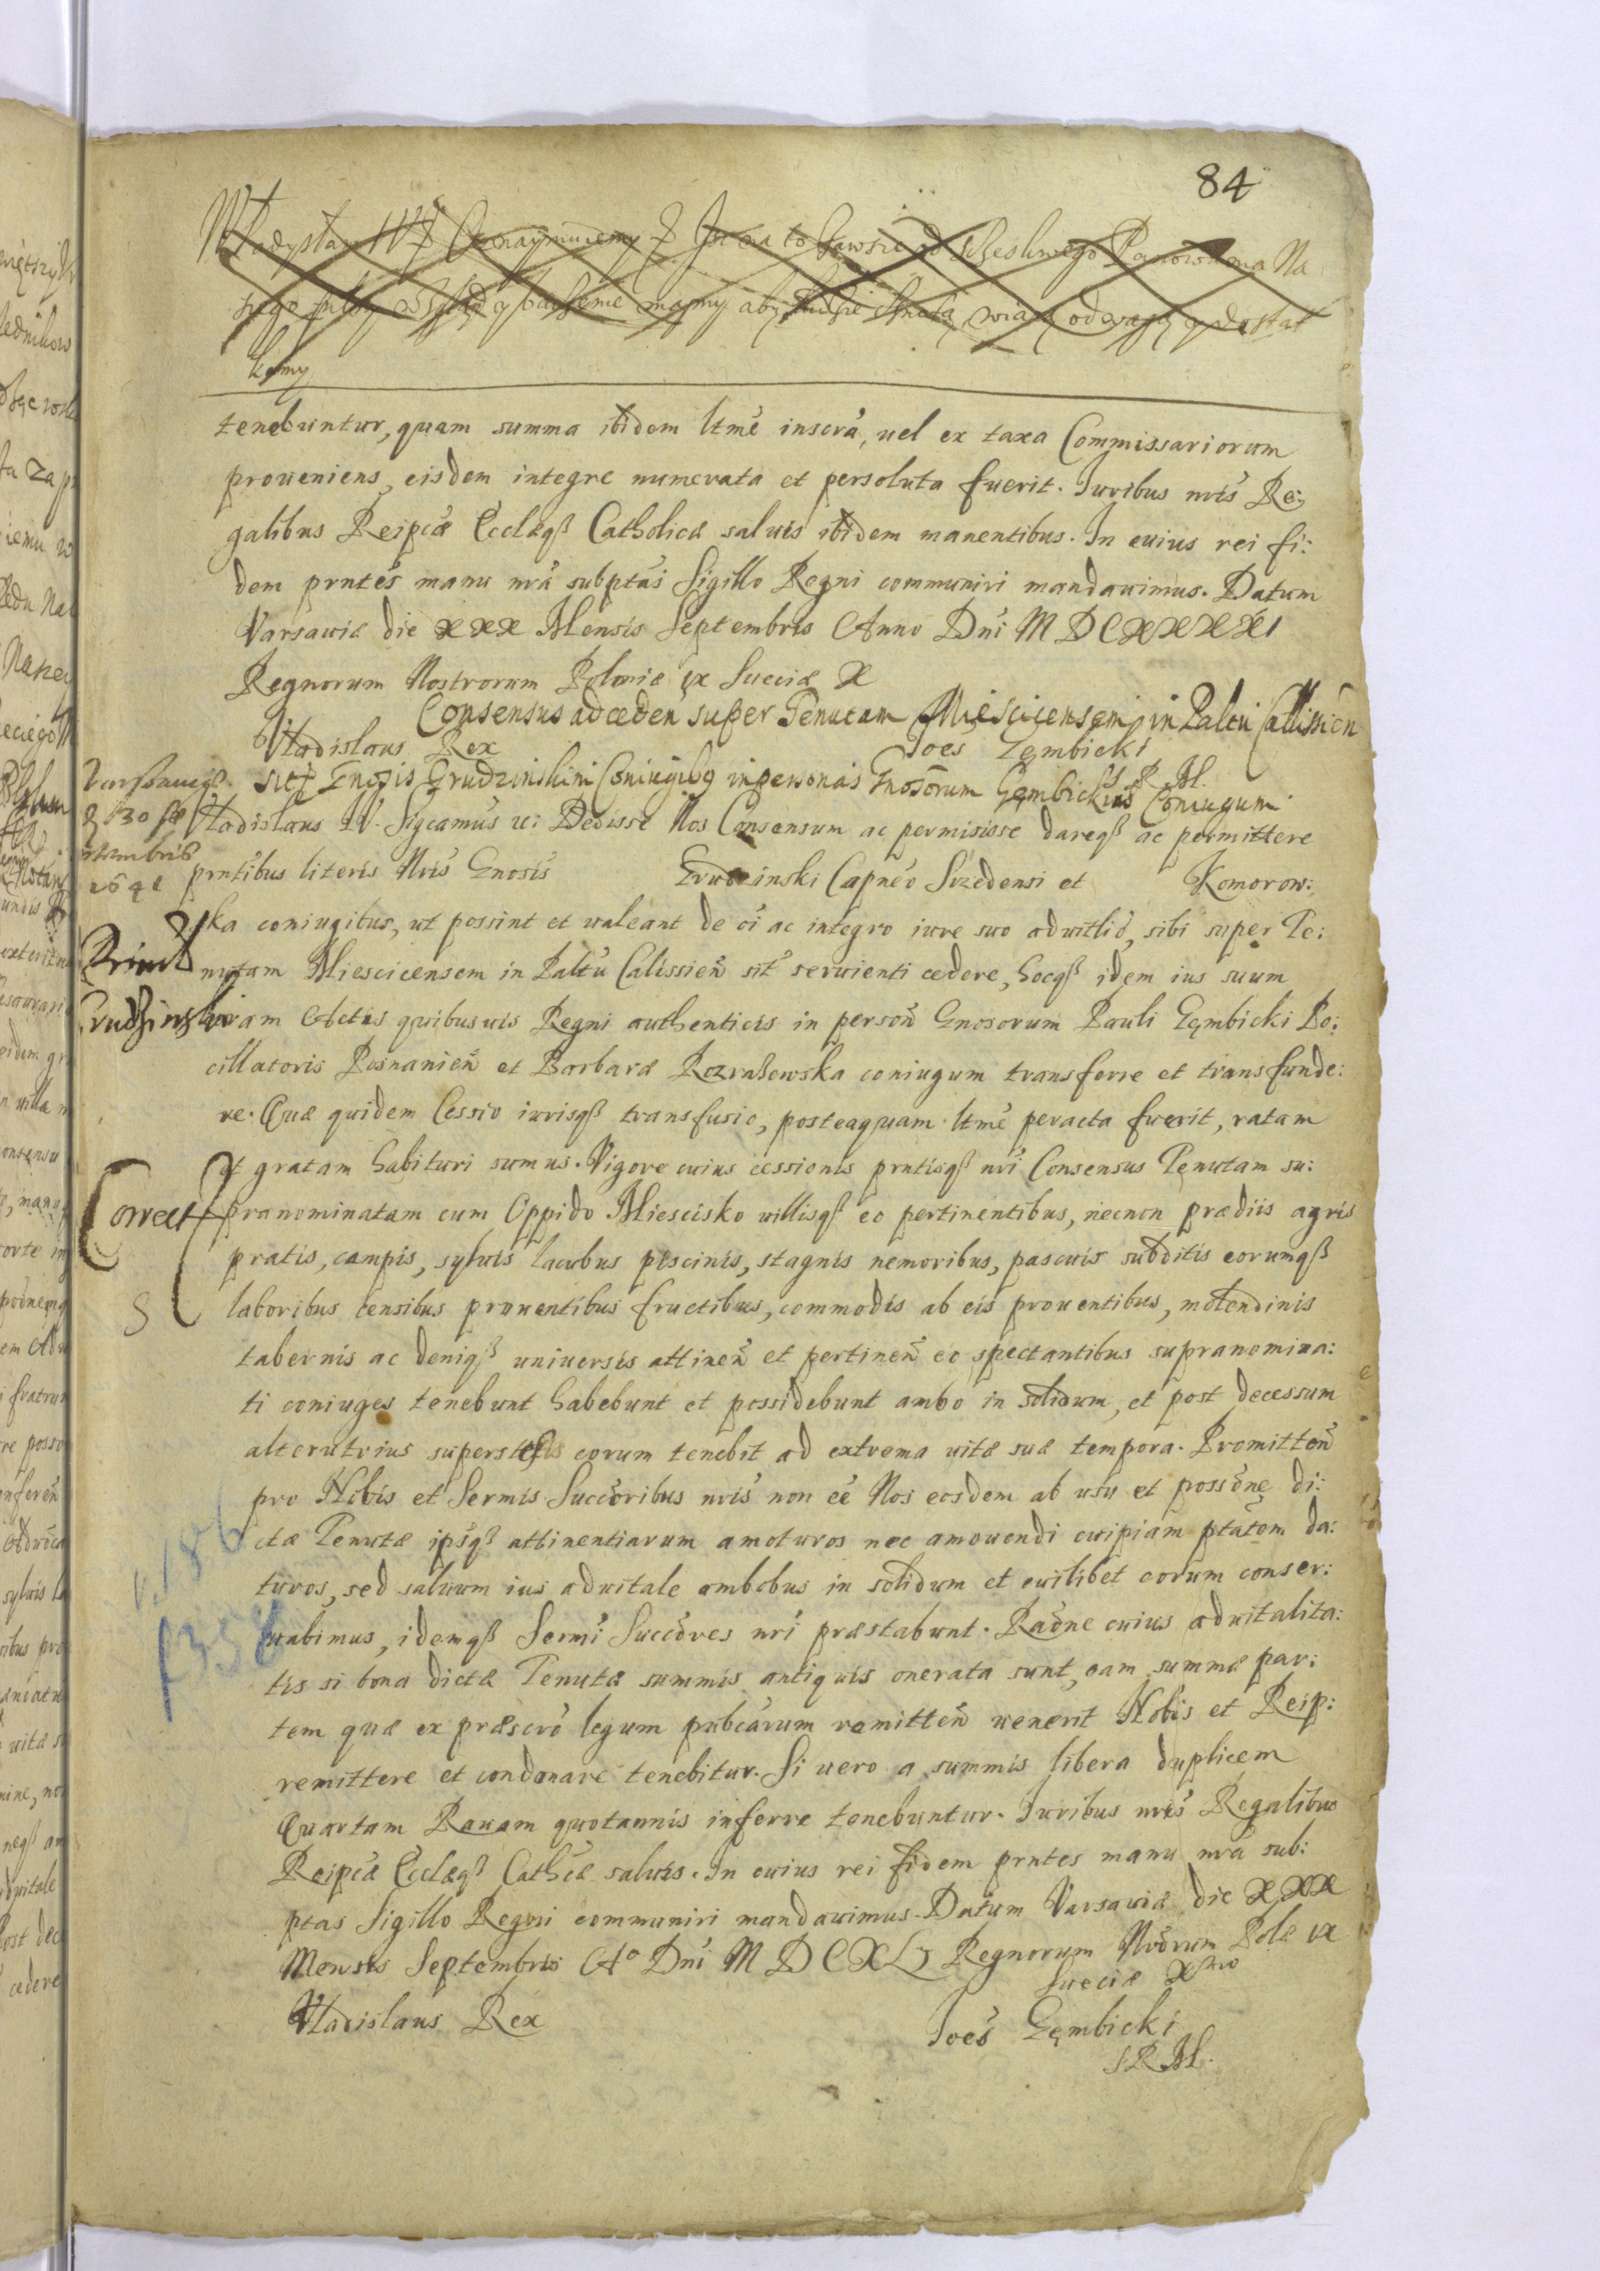 84
Władysław IV Oznaymuiemy Jż na to zawsze Na
szego mamy aby ludzie wiarą odwagą y dostat
kamy
tenebuntur, quam summa ibidem ltmè inscrà, uel ex taxa Commissariorum
proueniens, eisdem integre numerata et persoluta fuerit. Iuribus nris Re:
galibus Reipcæ Ecclæqß Catholicæ saluis ibidem manentibus. In cuius rei fi:
dem prntes manu nrà subptas Sigillo Regni communiri mandauimus. Datum
Varsauiæ die XXX Mensis Septembris Anno Dni MDCXXXXI
Regnorum Nostrorum Poloniæ IX Sueciæ X
Consensus ad cæden super Tenutam Miescicensem in Paltu Calissien
Vladislaus Rex
Joes Gembicki
S R M.
sitæ Gnosis Grudzinskim Coniugibq in personas Gnosorum Gembickius Coniugum
Varsauiæ
d 30 Se
ptembris
1641
Vladislaus IV. Sigcamus &c: Dedisse Nos Consensum ac permisisse dareqß ac permittere
prntibus literis Nris Gnosis Grudzinski Capneo Srzedensi et Komorow:
ska coniugibus, ut possint et ualeant de oi ac integro iure suo aduitlio, sibi super Te:
nutam Miescicensem in Paltu Calissien sit seruienti cedere, hocqß idem ius suum
Grudzinski
coram Actis quibusuis Regni authenticis in person Gnosorum Pauli Gembicki Po:
cillatoris Posnanien et Barbaræ Rozrażewska coniugum transferre et transfunde:
re. Quæ quidem Cessio iurisqß transfusio, posteaquam ltmè peracta fuerit, ratam
et gratam habituri sumus. Vigore cuius cessionis prntisqß nri Consensus Tenutam su:
Correct
pranominatam cum Oppido Miescisko uillisqß eo pertinentibus, necnon prædiis agris
pratis, campis, syluis lacubus piscinis, stagnis nemoribus, pascuis subditis eorumqß
S
laboribus censibus prouentibus fructibus, commodis ab eis prouentibus, molendinis
tabernis ac deniqß uniuersis attinen et pertinen eo spectantibus supranomina:
ti coniuges tenebunt habebunt et possidebunt ambo in solidum, et post decessum
alterutrius superstes eorum tenebit ad extrema uitæ suæ tempora. Promitten
pro Nobis et Sermis Succoribus nris non eè Nos eosdem ab usu et possone di:
ctæ Tenutæ ipsqß attinentiarum amoturos nec amouendi cuipiam ptatem da:
turos, sed saluum ius aduitale ambobus in solidum et cuilibet eorum conser:
v. 186
f 358
uabimus, idemqß Sermi Succores nri præstabunt. Raone cuius aduitalita:
tis si bona dictæ Tenutæ summis antiquis onerata sunt, eam summæ par:
tem quæ ex præscro legum pubcarum remitten uenerit Nobis et Reip:
remittere et condonare tenebitur. Si uero a summis libera duplicem
Quartam Rauam quotannis inferre tenebuntur. Iuribus nris Regalibus
Reipcæ Ecclæqß Cathcæ saluis. In cuius rei fidem prntes manu nra sub:
ptas Sigillo Regni communiri mandauimus. Datum Varsauiæ die XXX
Mensis Septembris Ao Dni MDCXLI Regnorum Nrorum Polæ IX
Sueciæ Xmo
Vladislaus Rex
Joes Gembicki
S R M.